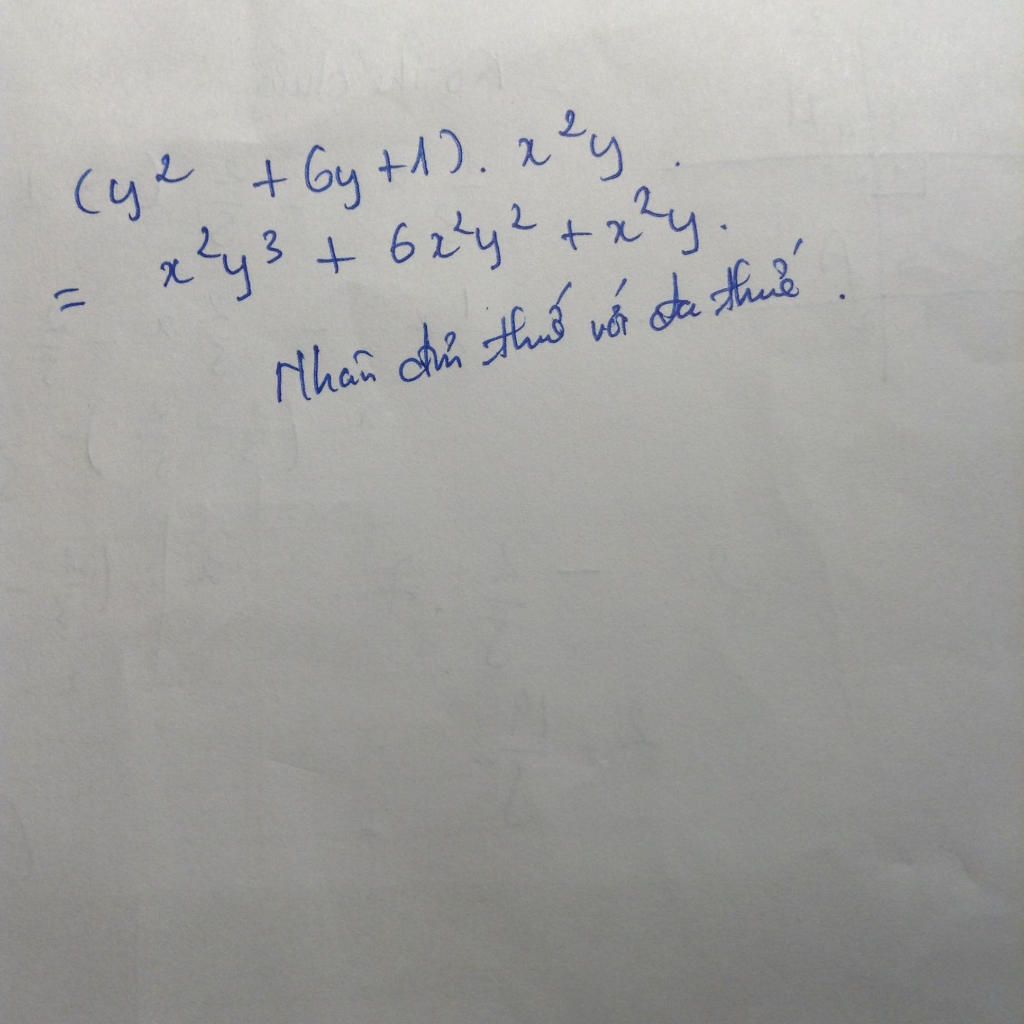 (y² + 6y + 1). x²y.
= x²y³ + 6x²y² + x²y.
Nhân đơn thức với đa thức.